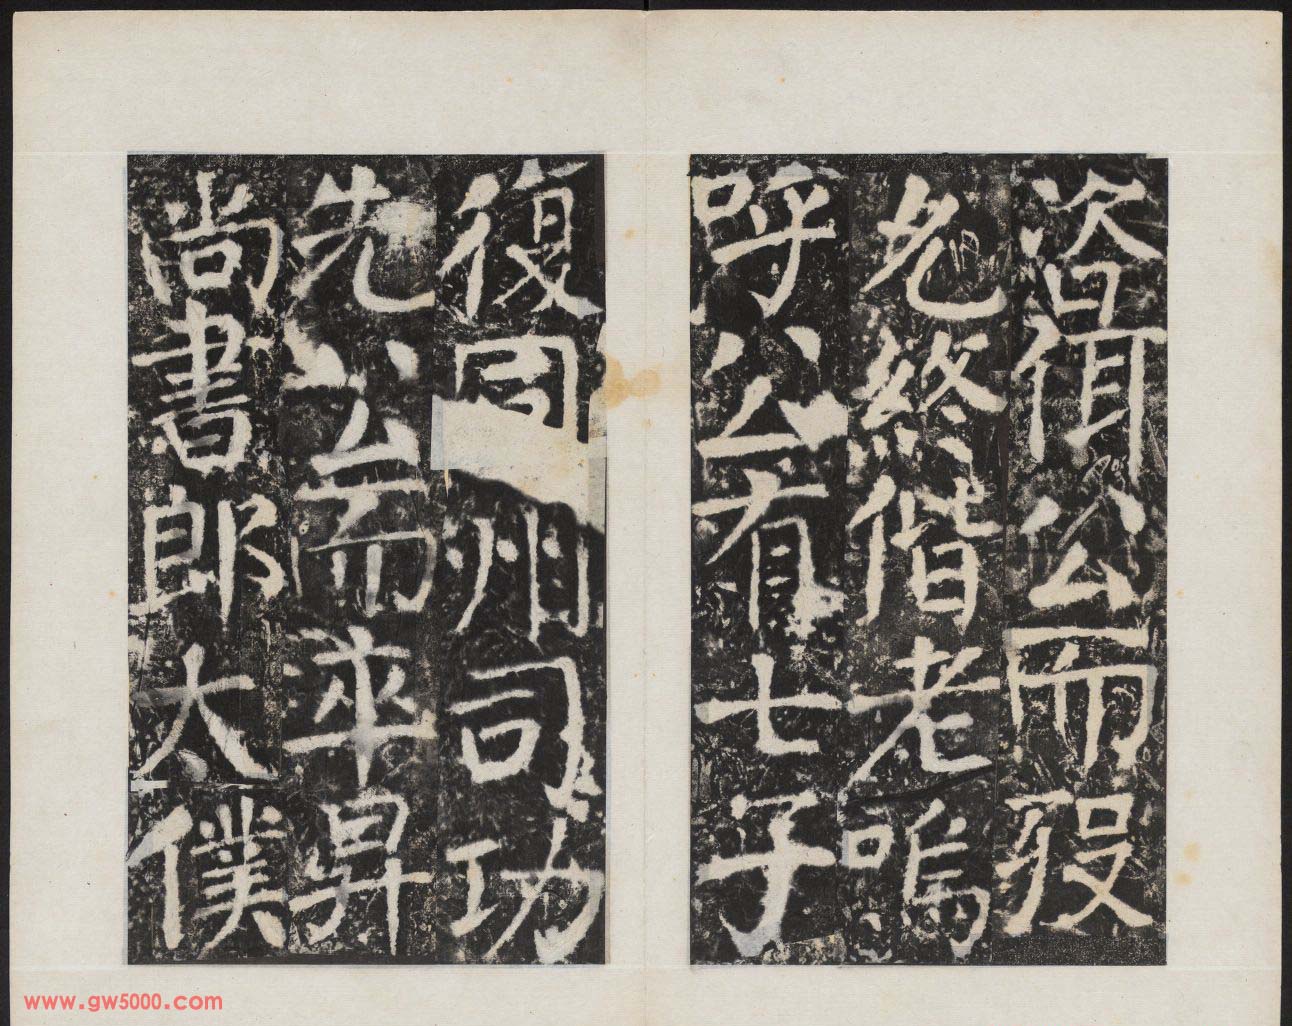 公而歿
終偕老嗚
呼公有七子
復同州司功
先公而卒昇
尚書郎太僕
www.gw5000.com